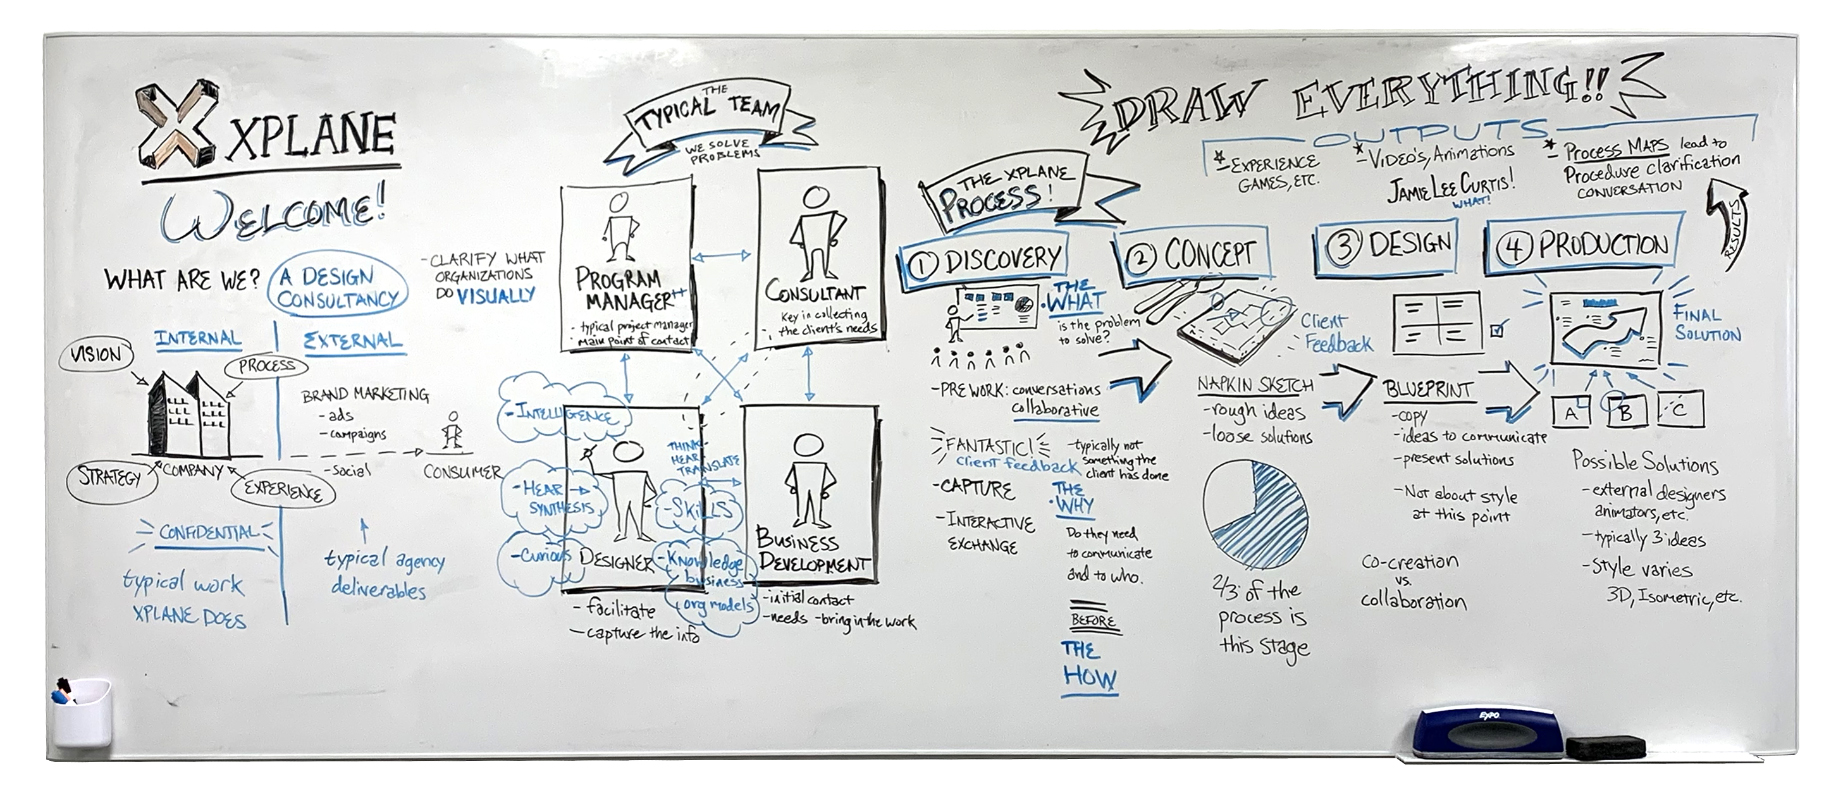 XPLANE
WELCOME!
WHAT ARE WE?
A DESIGN
CONSULTANCY
-CLARIFY WHAT
ORGANIZATIONS
DO VISUALLY
INTERNAL
EXTERNAL
VISION
PROCESS
STRATEGY
COMPANY
EXPERIENCE
BRAND MARKETING
-ads
-campaigns
-social
CONSUMER
CONFIDENTIAL
typical work
XPLANE DOES
typical agency
deliverables
THE
TYPICAL TEAM
WE SOLVE
PROBLEMS
PROGRAM
MANAGER++
- typical project manager
main point of contact
CONSULTANT
Key in collecting
the client's needs
-INTELLIGENCE
-HEAR
SYNTHESIS
-Curious
THINK
HEAR
TRANSLATE
-SKILLS
-Knowledge
business
(org models)
DESIGNER
-facilitate
-capture the info
BUSINESS
DEVELOPMENT
-initial contact
-needs -bring in the work
DRAW EVERYTHING!!
OUTPUTS
* -EXPERIENCE
GAMES, ETC.
* -VIDEO'S, ANIMATIONS
JAMIE LEE CURTIS!
WHAT!
* - PROCESS MAPS lead to
Procedure clarification
CONVERSATION
RESULTS
THE XPLANE
PROCESS!
1 DISCOVERY
THE
·WHAT
is the problem
to solve?
-PRE WORK: conversations
collaborative
FANTASTIC!
client feedback
-CAPTURE
-INTERACTIVE
EXCHANGE
-typically not
something the
client has done
THE
·WHY
Do they need
to communicate
and to who.
BEFORE
THE
HOW
2 CONCEPT
Client
Feedback
NAPKIN SKETCH
-rough ideas
-loose solutions
2/3 of the
process is
this stage
3 DESIGN
BLUEPRINT
-copy
-ideas to communicate
-present solutions
-Not about style
at this point
co-creation
vs.
collaboration
4 PRODUCTION
FINAL
SOLUTION
A B C
Possible Solutions
-external designers
animators, etc.
-typically 3 ideas
-Style varies
3D, Isometric, etc.
EXPO